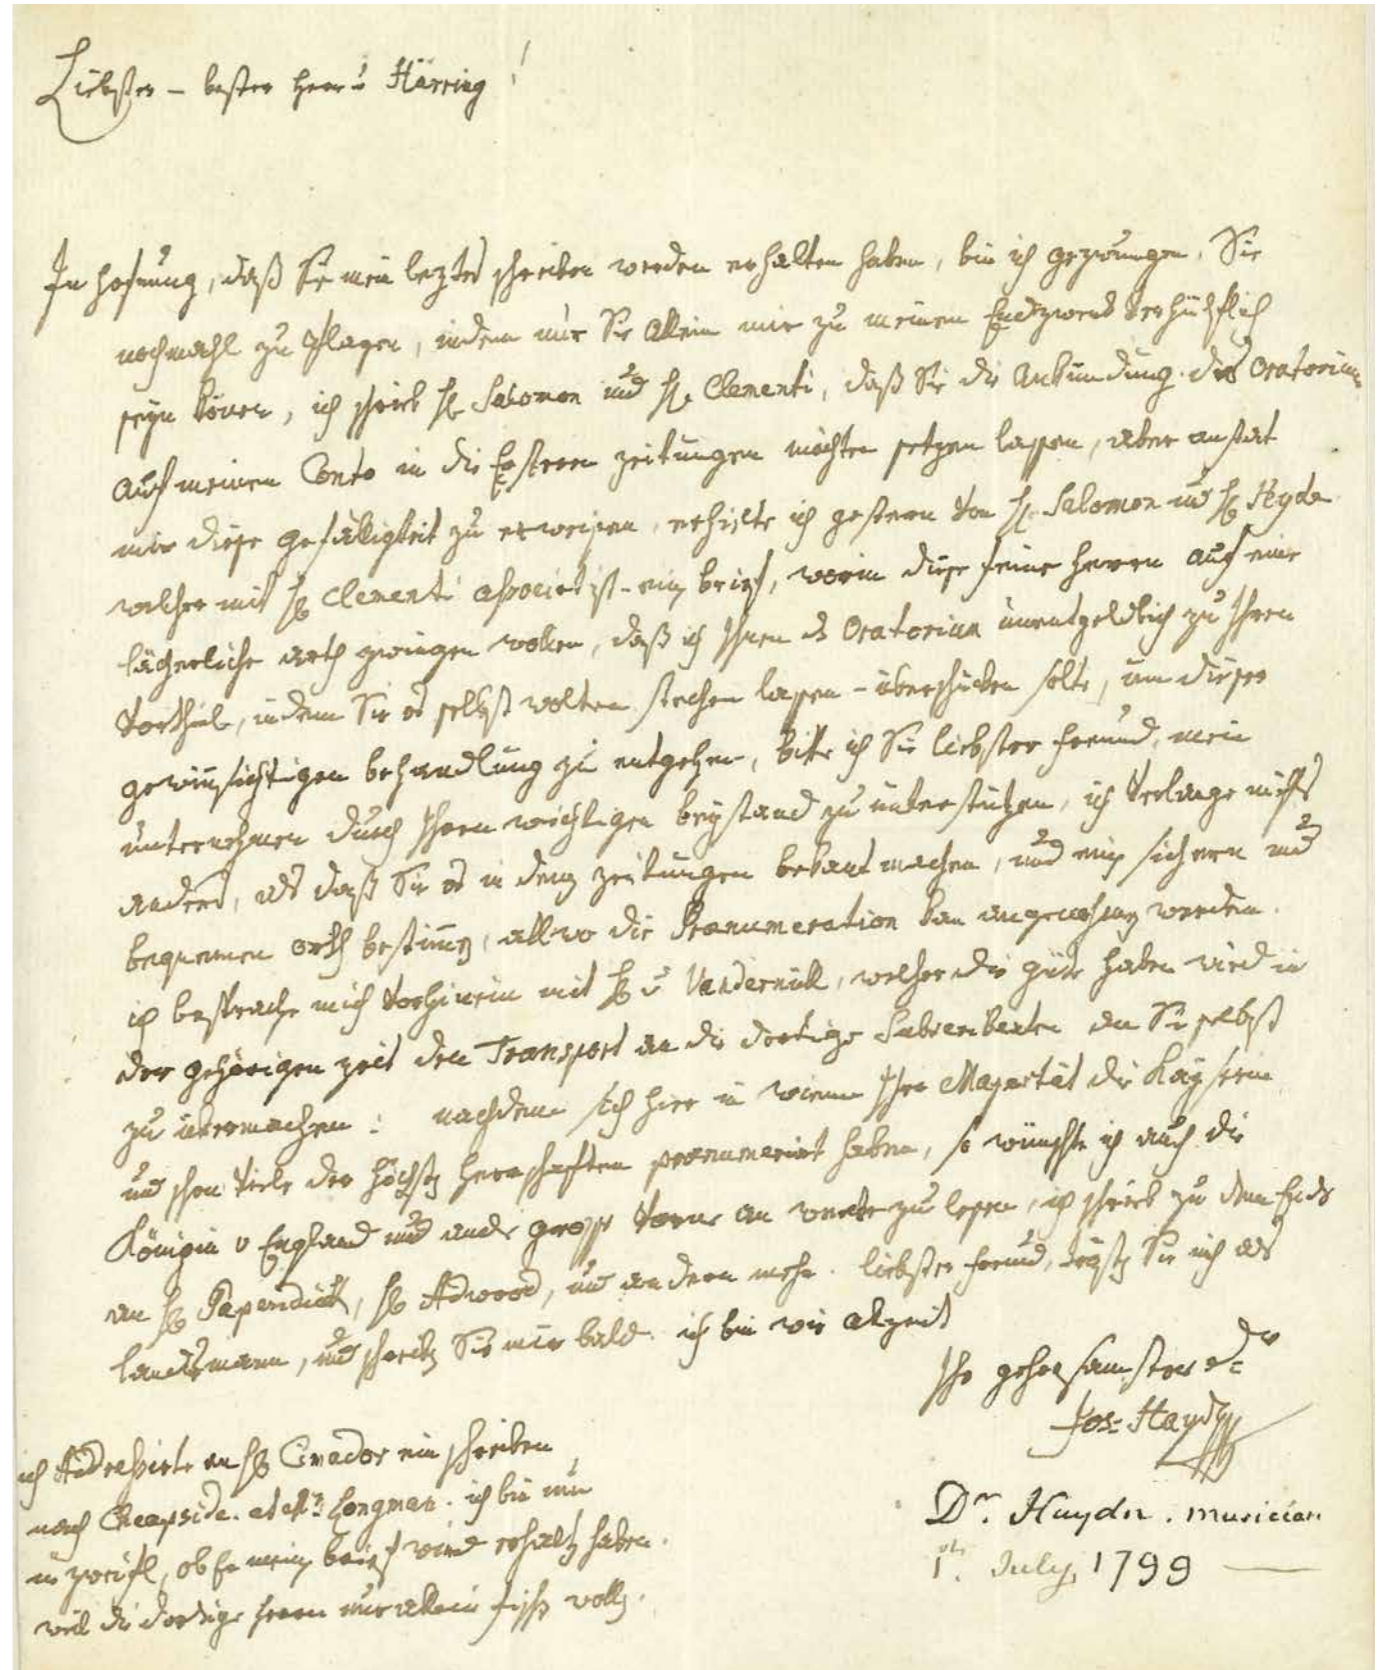 Liebster – bester Herr v Härring!
In hofnung, daß Sie mein leztes schreiben werden erhalten haben, bin ich gezwungen, Sie
nochmahl zu plagen, indem nur Sie allein mir zu meinen Endzweck behülflich
seyn könen, ich schrieb H. Salomon und H. Clementi, daß Sie die Ankündung des Oratorium
auf meinen Conto in die Ersteren zeitungen möchten setzen lassen, aber anstat
mir diese gefälligkeit zu erweisen, erhielte ich gestern von H. Salomon und H. Hyde
welcher mit H. Clementi associrt ist – ein brief, worin diese feine Herrn auf eine
lächerliche arth zwingen wollen, daß ich Ihnen ds Oratorium unentgeldlich zu Ihren
Vortheil, indem Sie es selbst wolten stechen lassen – überschicken solte, um dieser
gewinsichtigen behandlung zu entgehen, bitte ich Sie liebster freund, mein
unternehmen durch Ihren wichtigen beystand zu unterstützen, ich verlange nichts
anders, als daß Sie es in den zeitungen bekant machen, und ein sichern und
bequemen orth bestimen, allwo die Pranumeration kan angenohmen werden.
ich besprache mich vorhinein mit H v Vandernüll, welcher die güte haben wird in
der gehörigen zeit den Transport an die dortige Subscribenten an Sie selbst
zu übermachen: nachdem sich hier in Wienn Ihre Majestät die Kayserin
und schon viele der höchsten Herrschaften pranumerirt haben, so wünschte ich auch die
Königin v England und andere grosse Vorne an werte zu lesen, ich schrieb zu dem Ende
an H. Papendick, H. Adwood, und andern mehr. liebster freund, trösten Sie mich als
landsmann, und schreiben Sie mir bald. ich bin wie alzeit
Ihr gehorsamster dr
Jos: Haydn
ich Addressirte an H. Cimador ein schreiben
nach Cheapside. at Mrs Longman. ich bin nun
in zweifl, ob Er mein brief wird erhalten haben.
weil die dortige herrn nur allein fischen wollen.
Dr. Haydn. musician
1st July, 1799